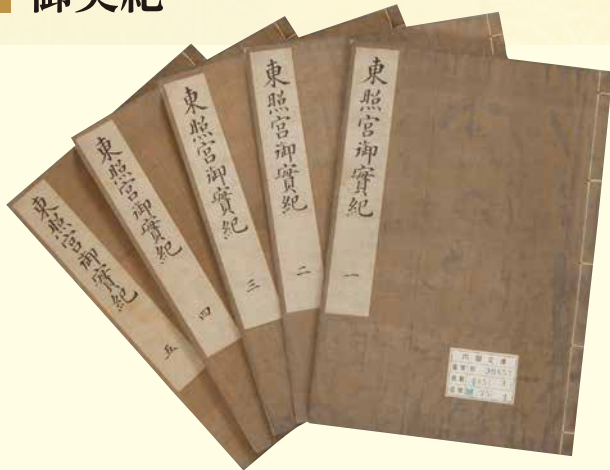 御実紀
東照宮御實紀
一
東照宮御實紀
二
東照宮御實紀
三
東照宮御實紀
四
東照宮御實紀
五
内閣文庫